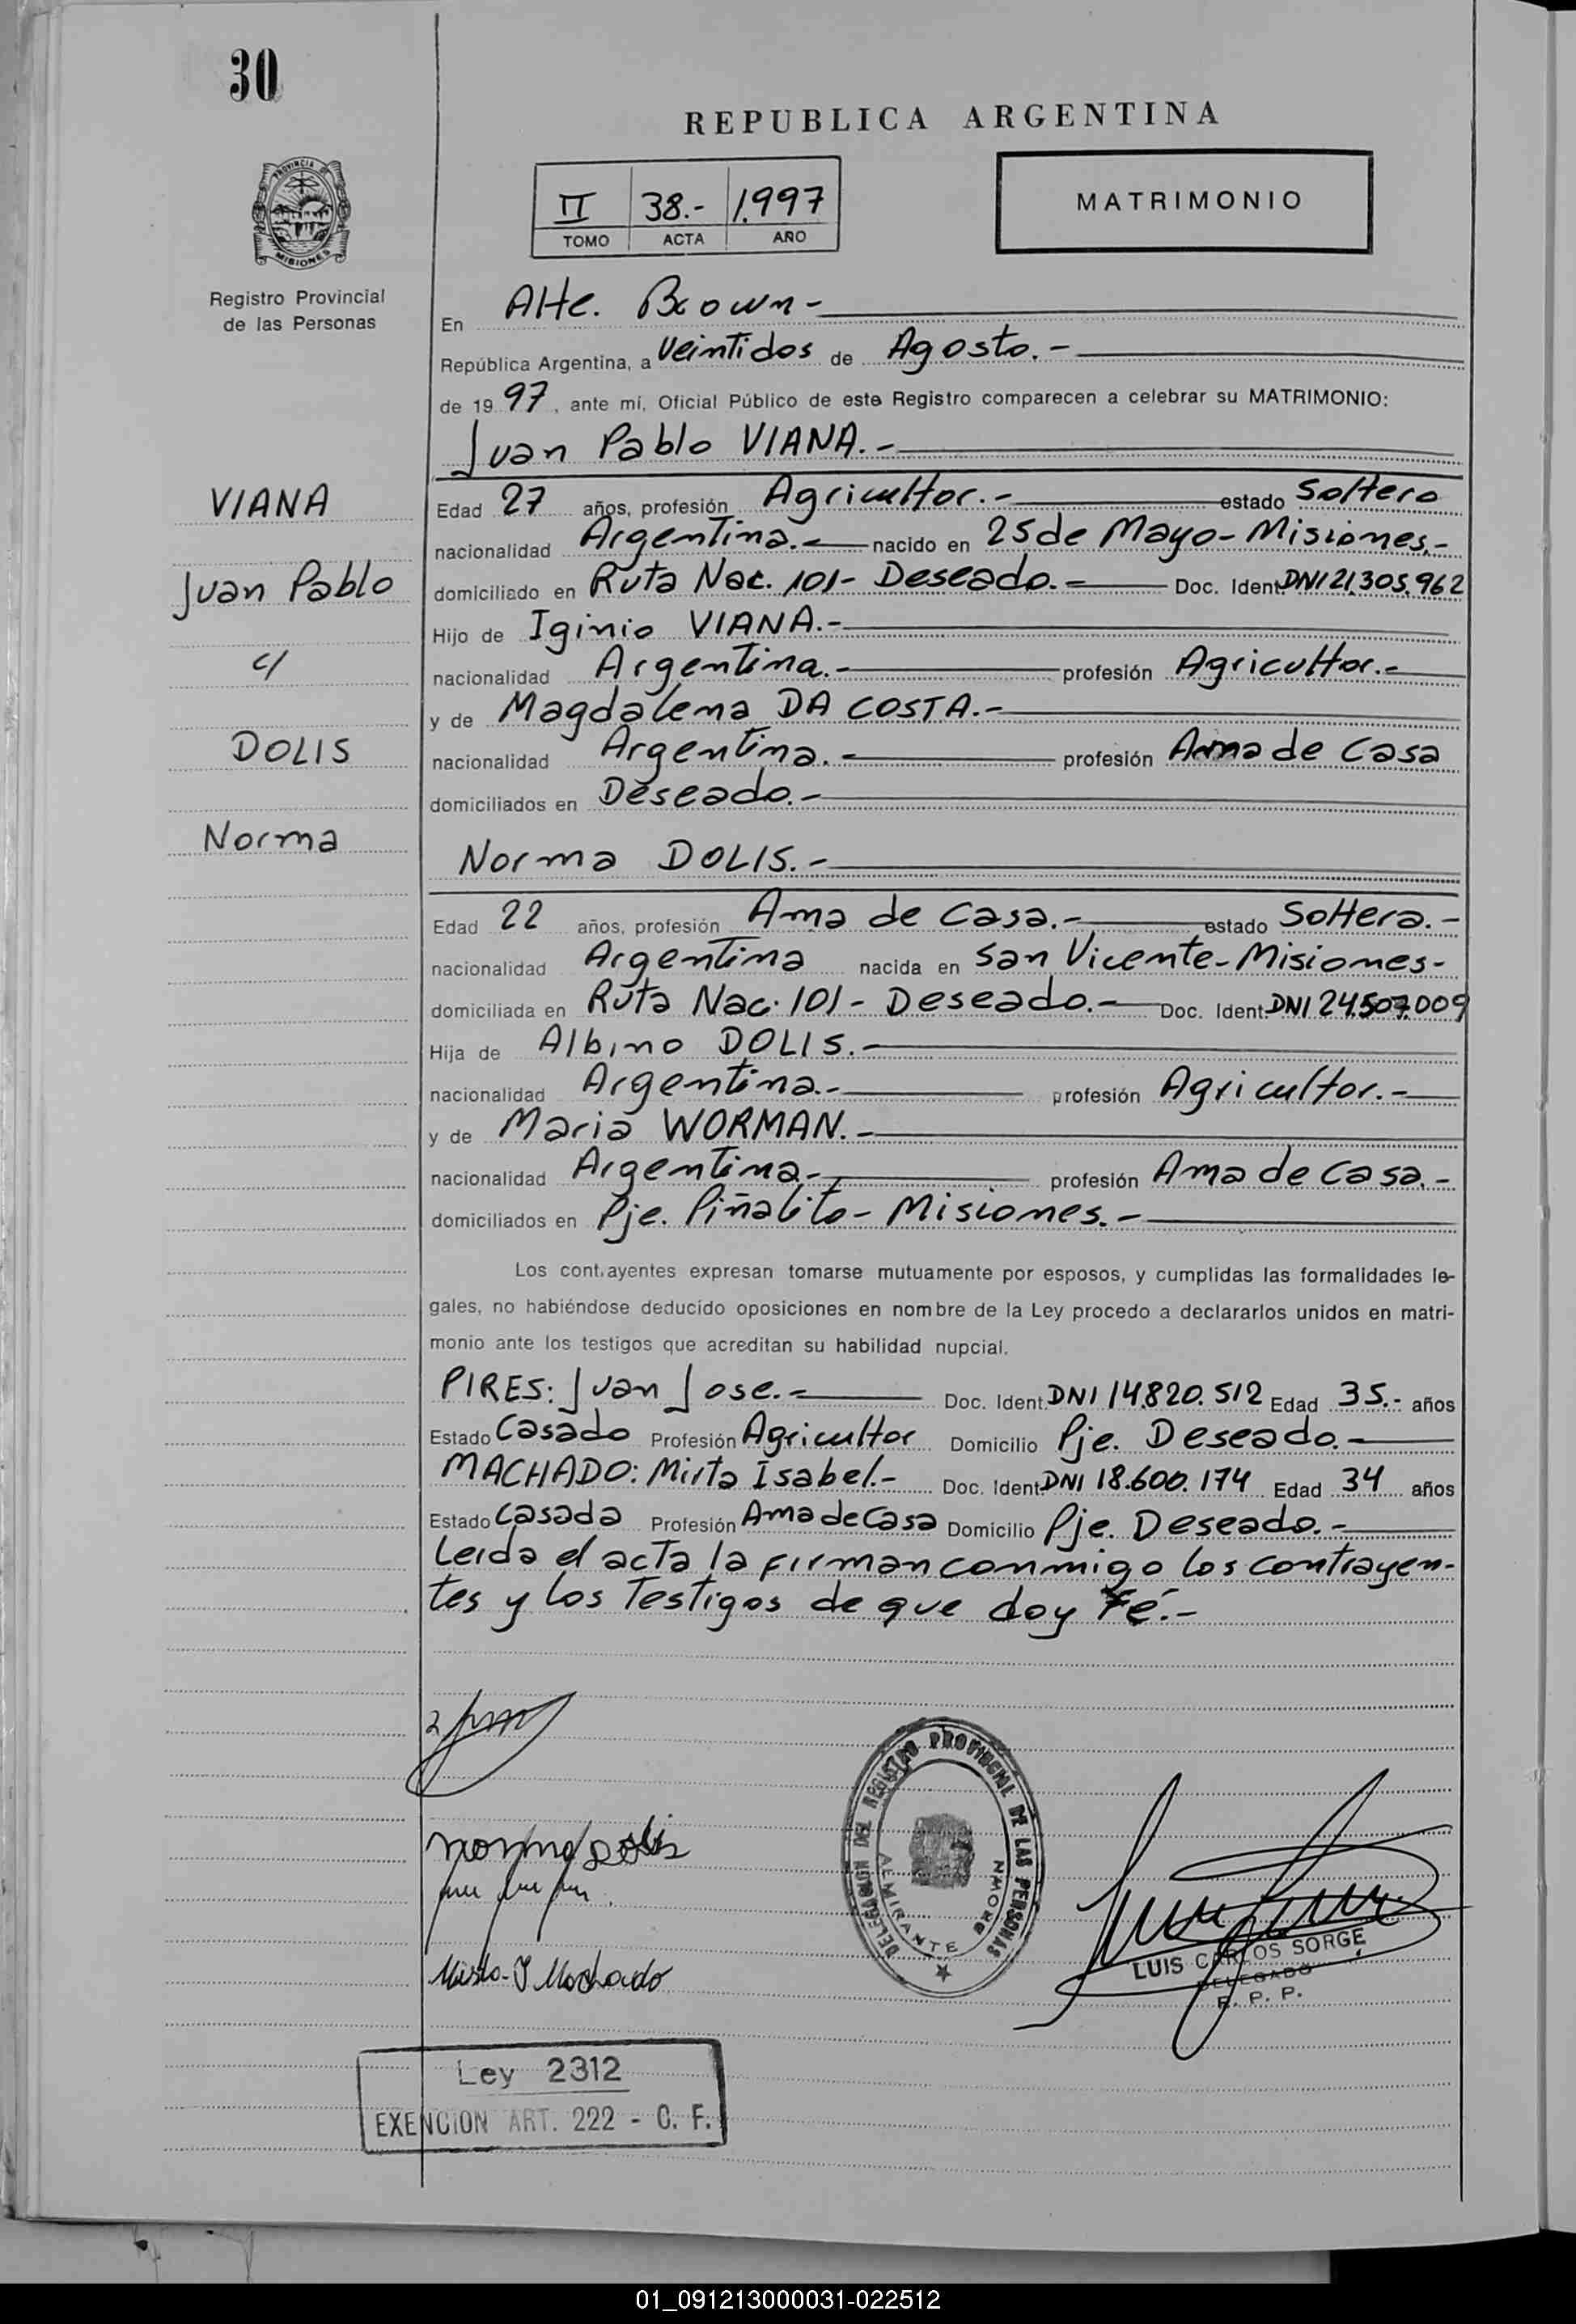 30
REPUBLICA ARGENTINA
PROVINCIA DE
MISIONES
Registro Provincial
de las Personas
II 38.- 1.997
TOMO ACTA AÑO
MATRIMONIO
En Alte. Brown -
República Argentina, a Veintidos de Agosto.-
de 1997, ante mí, Oficial Público de este Registro comparecen a celebrar su MATRIMONIO:
Juan Pablo VIANA.-
VIANA
Juan Pablo
c/
DOLIS
Norma
Edad 27 años, profesión Agricultor.- estado Soltero
nacionalidad Argentina.- nacido en 25 de Mayo - Misiones.-
domiciliado en Ruta Nac. 101- Deseado.- Doc. Ident. DNI 21.305.962
Hijo de Iginio VIANA.-
nacionalidad Argentina.- profesión Agricultor.-
y de Magdalena DA COSTA.-
nacionalidad Argentina.- profesión Ama de Casa
domiciliados en Deseado.-
Norma DOLIS.-
Edad 22 años, profesión Ama de Casa.- estado Soltera.-
nacionalidad Argentina nacida en San Vicente - Misiones-
domiciliada en Ruta Nac. 101 - Deseado.- Doc. Ident. DNI 24.507.009
Hija de Albino DOLIS.-
nacionalidad Argentina.- profesión Agricultor.-
y de Maria WORMAN.-
nacionalidad Argentina.- profesión Ama de Casa.-
domiciliados en Pje. Piñalito - Misiones.-
Los contrayentes expresan tomarse mutuamente por esposos, y cumplidas las formalidades le-
gales, no habiéndose deducido oposiciones en nombre de la Ley procedo a declararlos unidos en matri-
monio ante los testigos que acreditan su habilidad nupcial.
PIRES: Juan Jose.- Doc. Ident. DNI 14.820.512 Edad 35.- años
Estado Casado Profesión Agricultor Domicilio Pje. Deseado.-
MACHADO: Mirta Isabel.- Doc. Ident. DNI 18.600.174 Edad 34 años
Estado Casada Profesión Ama de Casa Domicilio Pje. Deseado.-
Leida el acta la firman conmigo los contrayen-
tes y los Testigos de que doy Fé.-
DELEGACION DEL REGISTRO PROVINCIAL DE LAS PERSONAS
ALMIRANTE BROWN
norma Dolis
Mirta I Machado
LUIS CARLOS SORGE
DELEGADO
R. P. P.
Ley 2312
EXENCION ART. 222 - C. F.
01_091213000031-022512